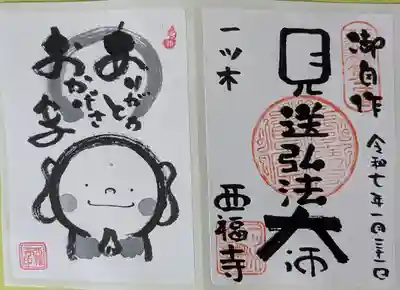 御自作
令和七年一月
見送弘法大師
一ツ木
西福寺
ありがとう
おかげさま